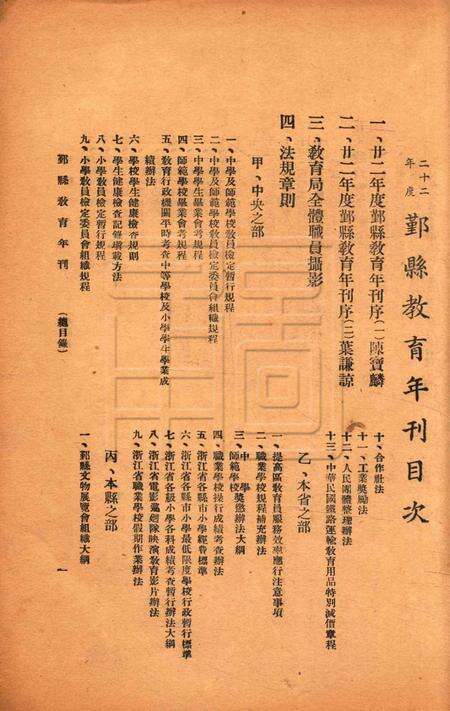 二十二年度 鄞縣教育年刊目次
一、廿二年度鄞縣教育年刊序(一)陳寶麟
二、廿二年度鄞縣教育年刊序(二)葉謙諒
三、教育局全體職員攝影
四、法規章則
甲、中央之部
一、中學及師範學校教員檢定暫行規程
二、中學及師範學校教員檢定委員會組織規程
三、中學學生畢業會考規程
四、師範學校畢業會考規程
五、教育行政機關平時考查中等學校及小學學生學業成
績辦法
六、學校學生健康檢查規則
七、學生健康檢查記載方法
八、小學教員檢定暫行規程
九、小學教員檢定委員會組織規程
十、合作社法
十一、工業獎勵法
十二、人民團體整理辦法
十三、中華民國鐵路運輸教育用品特別減價章程
乙、本省之部
一、提高區教育員服務效率應行注意事項
二、職業學校規程補充辦法
三、中學 師範學校獎懲辦法大綱
四、職業學校操行成績考查辦法
五、浙江省各縣市小學經費標準
六、浙江省各縣市小學最低限度學校行政暫行標準
七、浙江省各級小學各科成績考查暫行辦法大綱
八、浙江省電影巡迴隊映演教育影片辦法
九、浙江省職業學校假期作業辦法
丙、本縣之部
一、鄞縣文物展覽會組織大綱
鄞縣教育年刊 (總目錄) 一